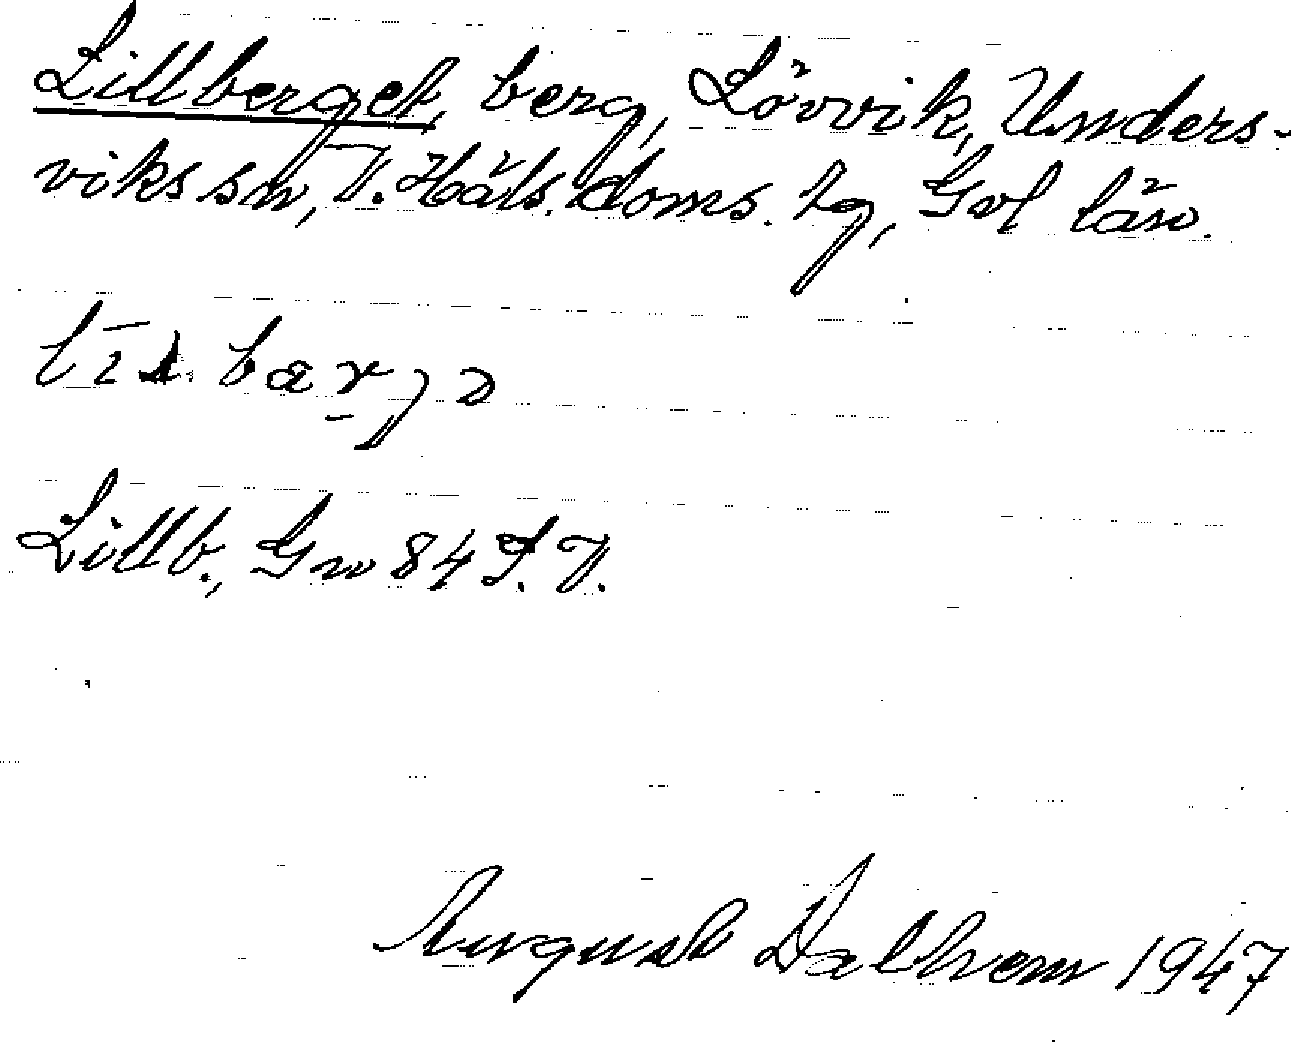 Lillberget, berg, Lövvik,Unders-
viks sn, V. Häls. doms. tg, Gvl län.
Lillb., Gn 84 S.V.
August Dalhem 1947